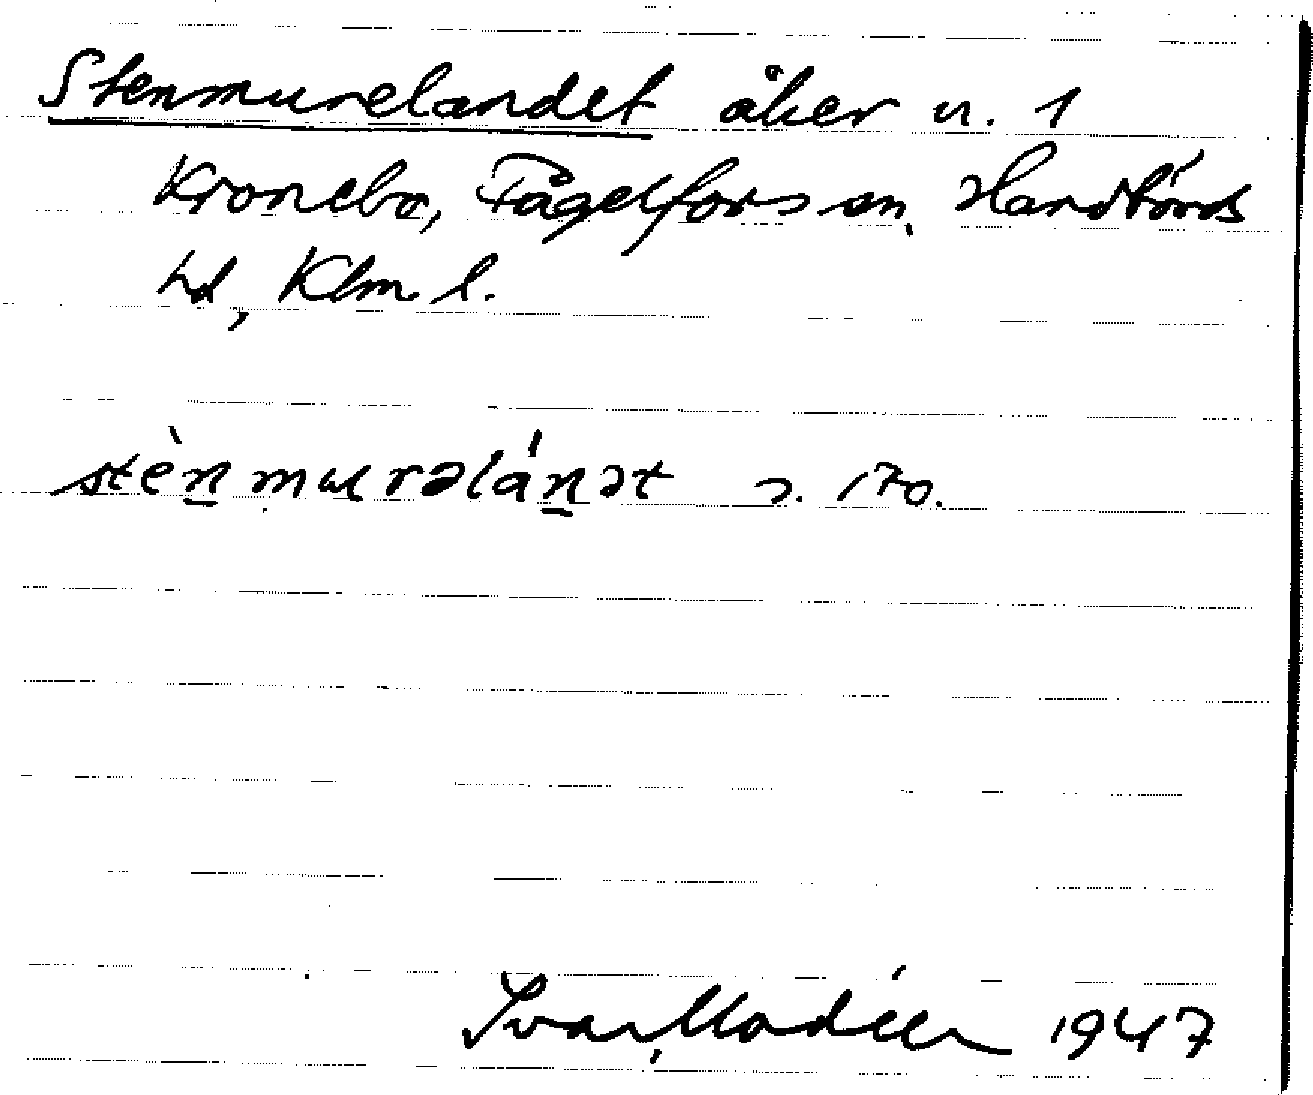 Stenmurelandet åker u. 1
Kronebo, Fågelfors sn, Handbörds
hd, Klm. l.
stènmurəlánət s. 170.
Ivar Modéer 1947